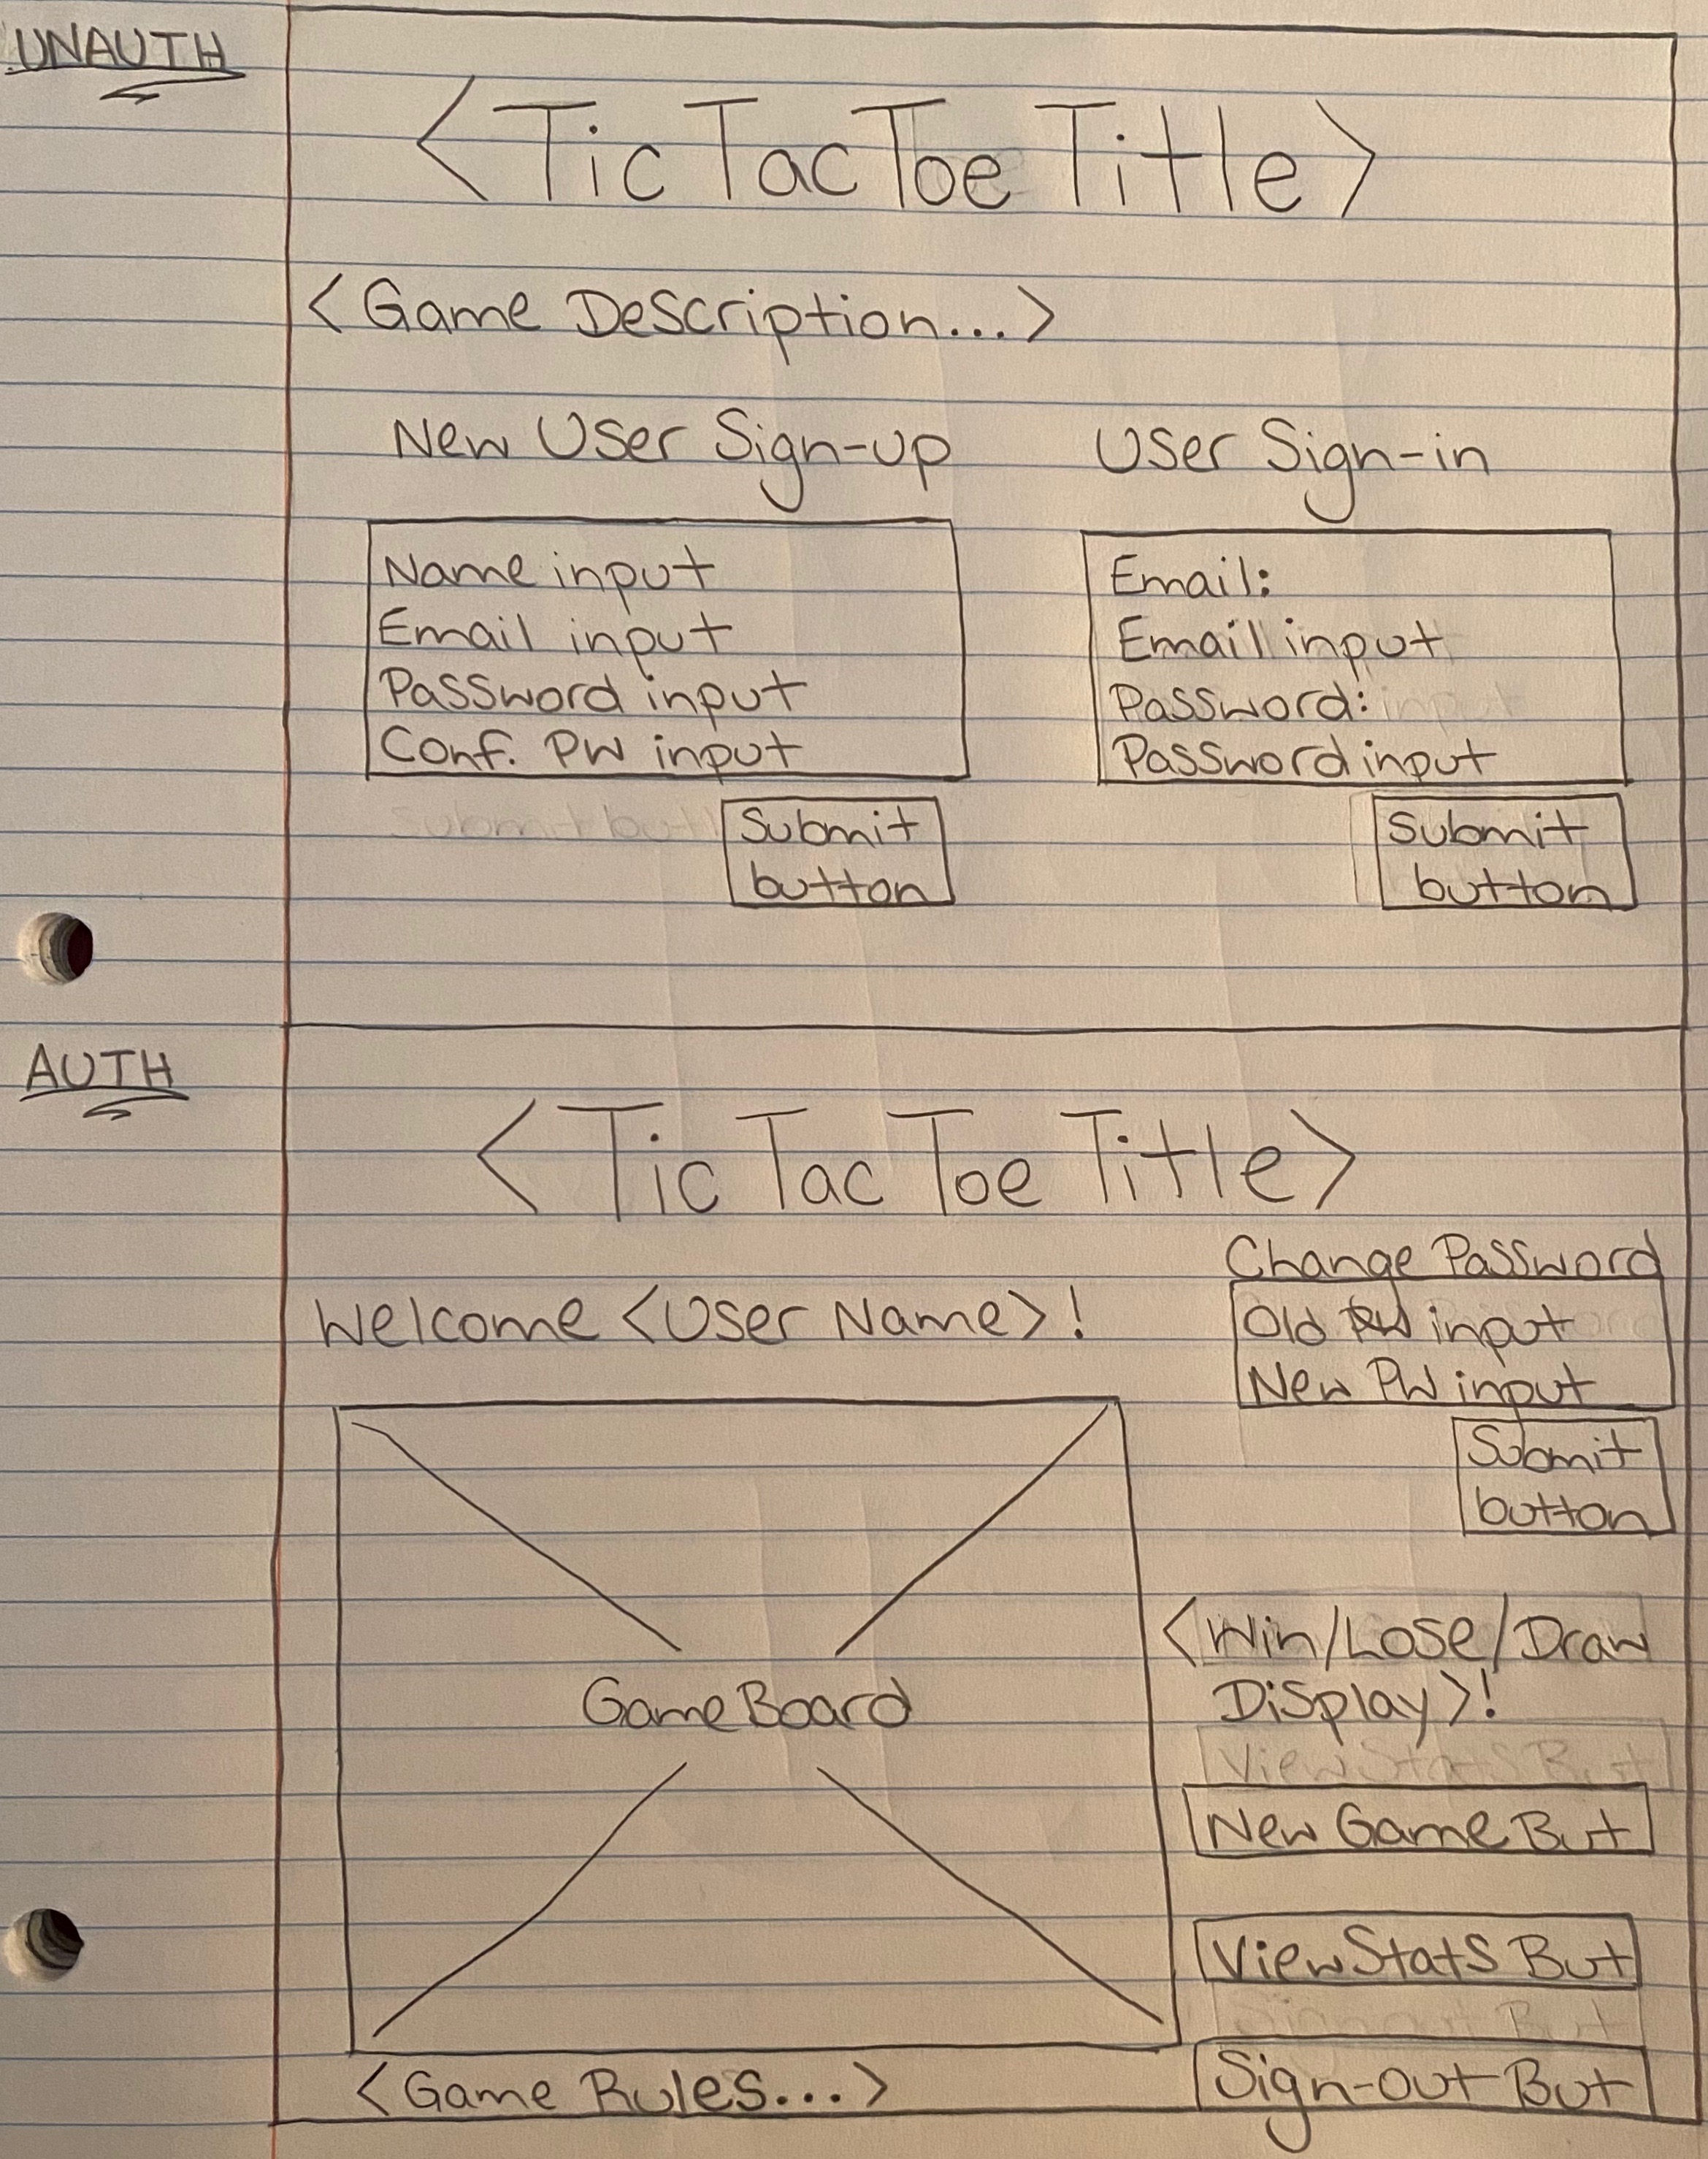 UNAUTH
<Tic Tac Toe Title>
<Game Description...>
New User Sign-up
Name input
Email input
Password input
Conf. PW input
Submit
button
User Sign-in
Email:
Email input
Password: input
Password input
Submit
button
Submit butt
AUTH
<Tic Tac Toe Title>
Welcome <User Name>!
Change Password
Old PW input
New PW input
Submit
button
Game Board
<Win/Lose/Draw
Display>!
View Stats But
New Game But
View Stats But
Sign out But
Sign-out But
<Game Rules...>